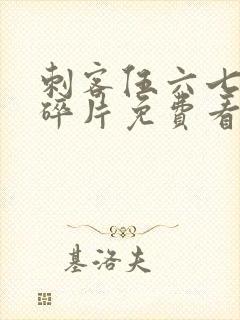 刺客伍六七
碎片免費看
基洛夫